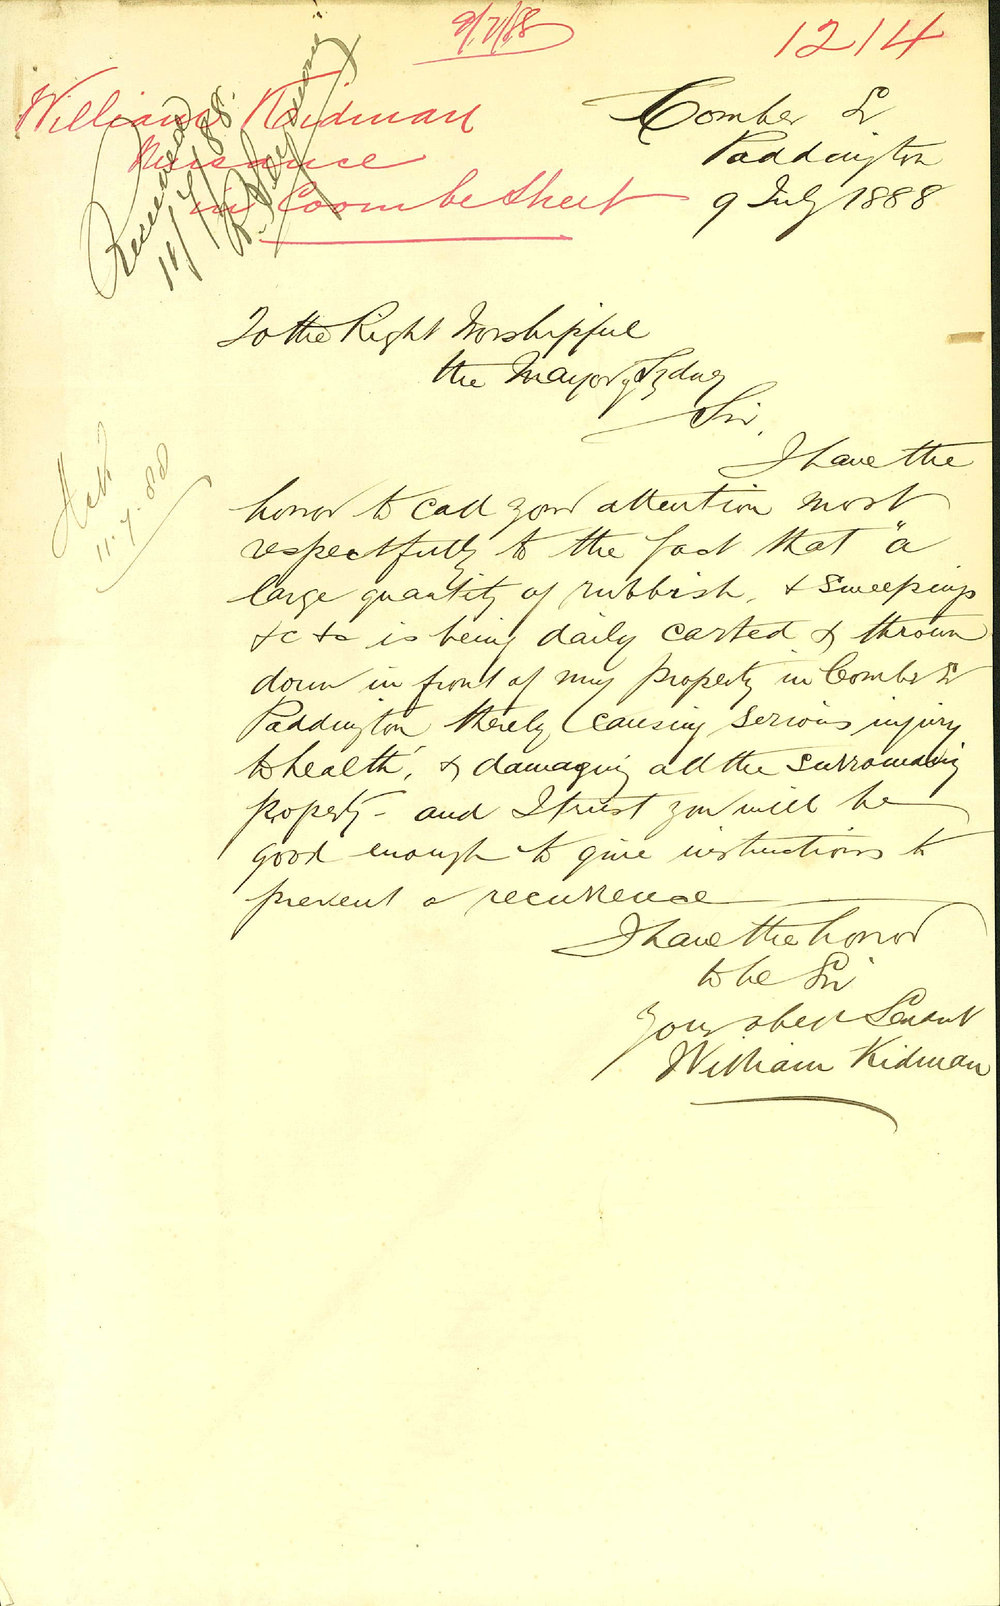 9/7/88
1214
William Kidman
Nuisance
in Coombe Street
Received
11/7/88.
Comber St
Paddington
9 July 1888
To the Right Worshipful
the Mayor of Sydney
Sir,
Ack
11.7.88
I have the
honor to call your attention most
respectfully to the fact that "a
large quantity of rubbish, & sweepings
&c &c is being daily carted & thrown
down in front of my property in Comber St
Paddington thereby causing serious injury
to health, & damaging all the surrounding
property - and I trust you will be
good enough to give instructions to
prevent a recurrence
I have the honor
to be Sir
Your obed Servant
William Kidman